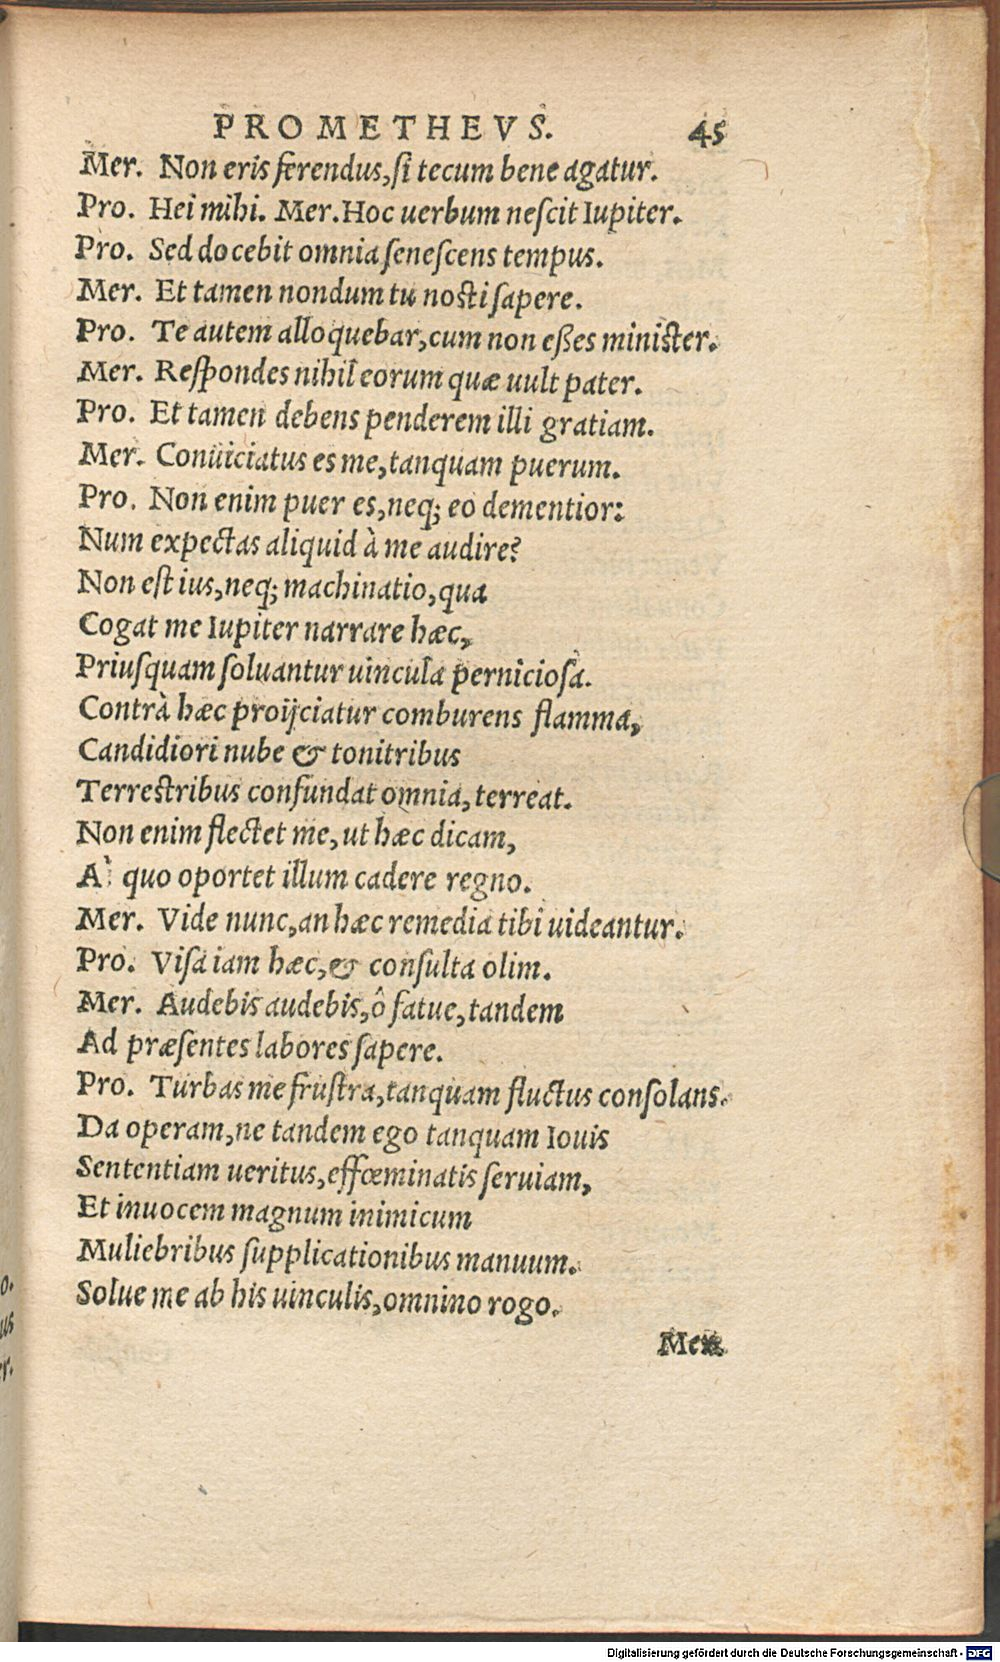 PROMETHEVS. 45
Mer. Non eris ferendus, si tecum bene agatur.
Pro. Hei mihi. Mer. Hoc uerbum nescit Iupiter.
Pro. Sed docebit omnia senescens tempus.
Mer. Et tamen nondum tu nosti sapere.
Pro. Te autem alloquebar, cum non eßes minister.
Mer. Respondes nihil eorum quæ uult pater.
Pro. Et tamen debens penderem illi gratiam.
Mer. Conuiciatus es me, tanquam puerum.
Pro. Non enim puer es, neq; eo dementior:
Num expectas aliquid à me audire?
Non est ius, neq; machinatio, qua
Cogat me Iupiter narrare hæc,
Priusquam soluantur uincula perniciosa.
Contrà hæc proijciatur comburens flamma,
Candidiori nube & tonitribus
Terrestribus confundat omnia, terreat.
Non enim flectet me, ut hæc dicam,
A` quo oportet illum cadere regno.
Mer. Vide nunc, an hæc remedia tibi uideantur.
Pro. Visa iam hæc, & consulta olim.
Mer. Audebis audebis, ô fatue, tandem
Ad præsentes labores sapere.
Pro. Turbas me frustra, tanquam fluctus consolans.
Da operam, ne tandem ego tanquam Iouis
Sententiam ueritus, effœminatis seruiam,
Et inuocem magnum inimicum
Muliebribus supplicationibus manuum.
Solue me ab his uinculis, omnino rogo.
Mer.
o.
us
er.
Digitalisierung gefördert durch die Deutsche Forschungsgemeinschaft - DFG